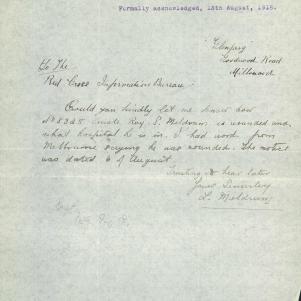 Formally acknowledged, 13th August, 1918.
Goodwood Road
Millswood
To The
Red Cross Information Bureau.
Would you kindly let me know how
No 8328 Private Roy S. Meldrum is wounded and
what hospital he is in. I had word from
Melbourne saying he was wounded. The
was dated 6 of August.
Trusting to hear later
Yours Sincerely
L. Meldrum